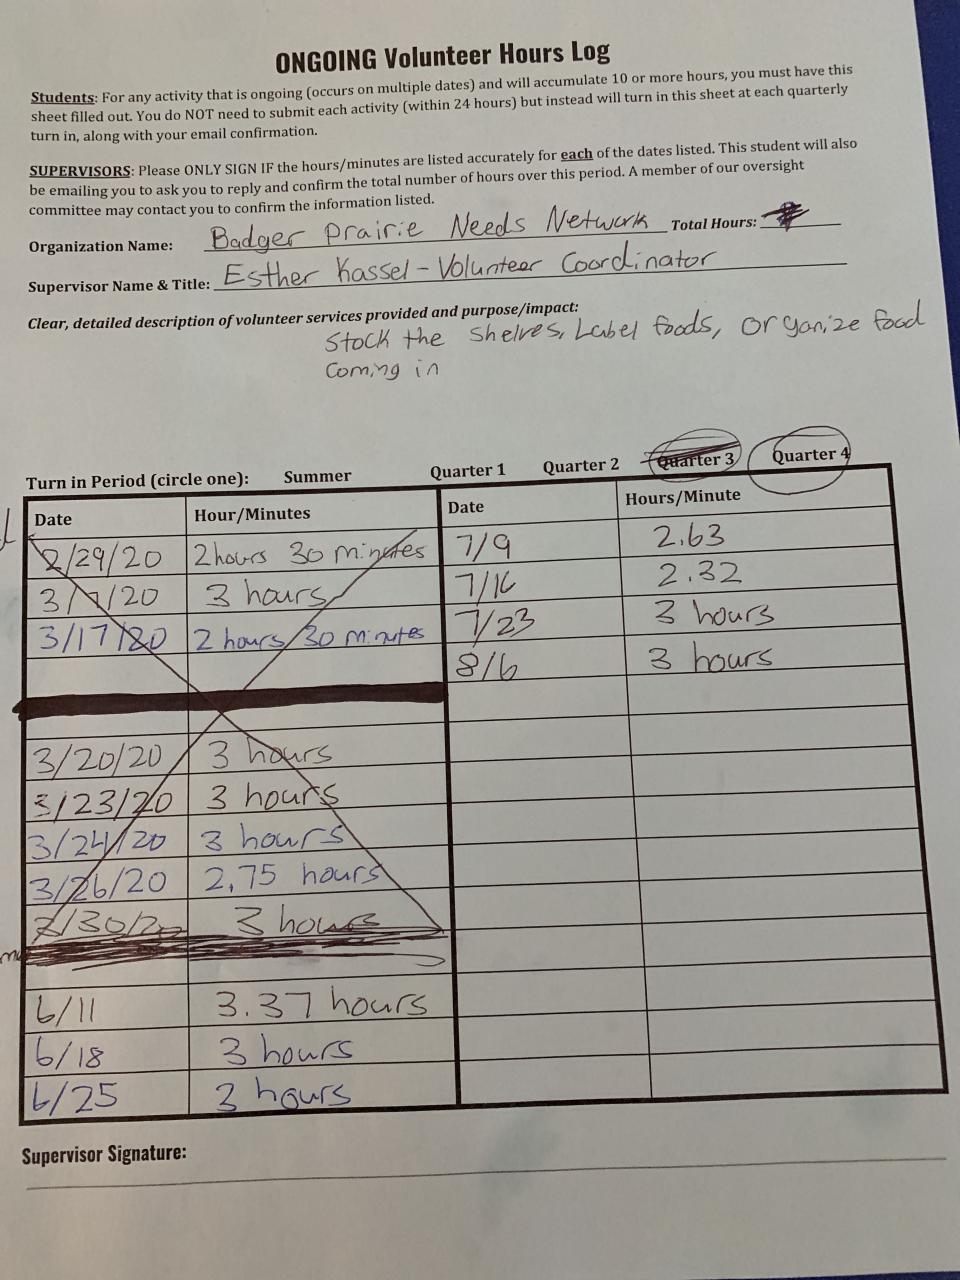 ONGOING Volunteer Hours Log
Students: For any activity that is ongoing (occurs on multiple dates) and will accumulate 10 or more hours, you must have this
sheet filled out. You do NOT need to submit each activity (within 24 hours) but instead will turn in this sheet at each quarterly
turn in, along with your email confirmation.
SUPERVISORS: Please ONLY SIGN IF the hours/minutes are listed accurately for each of the dates listed. This student will also
be emailing you to ask you to reply and confirm the total number of hours over this period. A member of our oversight
committee may contact you to confirm the information listed.
Organization Name: Badger Prairie Needs Network Total Hours:
Supervisor Name & Title: Esther Kassel - Volunteer Coordinator
Clear, detailed description of volunteer services provided and purpose/impact:
Stock the shelves, Label foods, organize food
coming in
Turn in Period (circle one): Summer Quarter 1 Quarter 2 Quarter 3 Quarter 4
Date Hour/Minutes Date Hours/Minute
2/29/20 2 hours 30 minutes 7/9 2.63
3/7/20 3 hours 7/16 2.32
3/17/20 2 hours 30 minutes 7/23 3 hours
8/6 3 hours
3/20/20 3 hours
3/23/20 3 hours
3/24/20 3 hours
3/26/20 2.75 hours
3/30/20 3 hours
6/11 3.37 hours
6/18 3 hours
6/25 3 hours
Supervisor Signature: